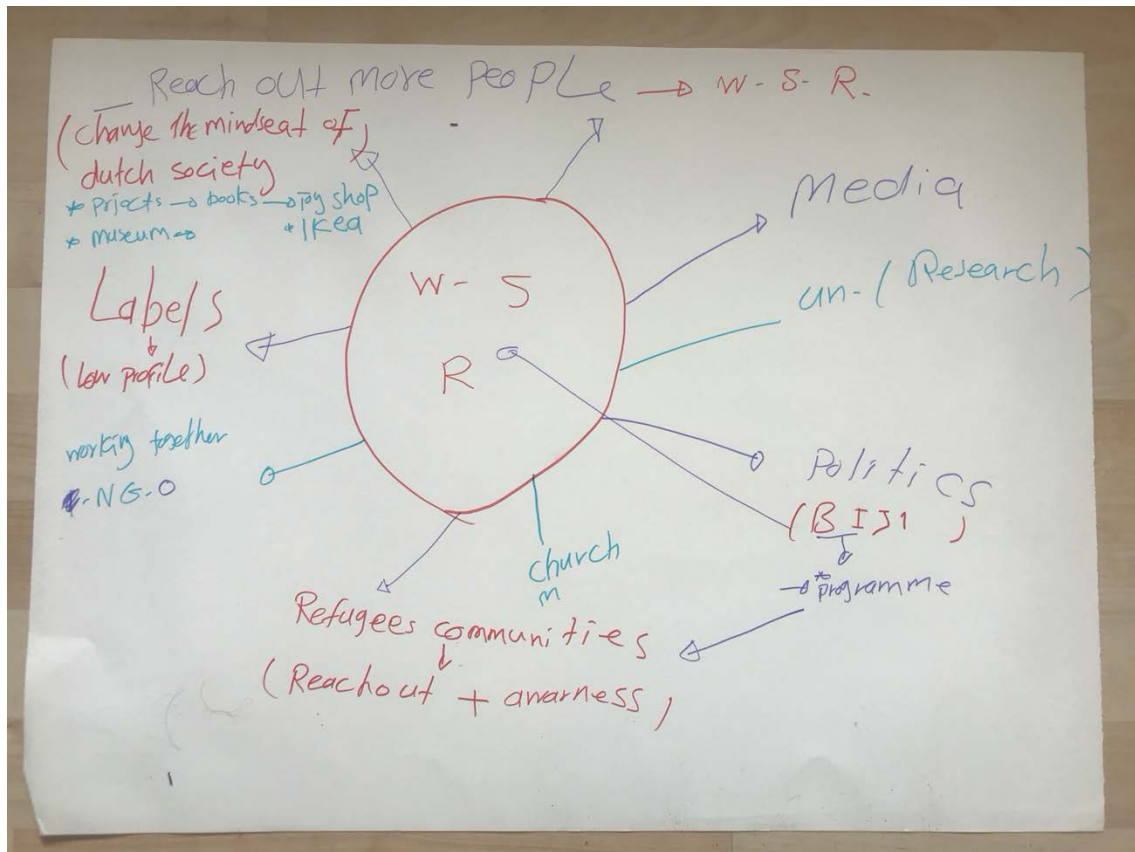 Reach out more People → W-S-R.
(change the mindseat of)
dutch society
* Prjocts → books → toy shop
* museum → * IKea
Labels
(low profile)
working together
NG-O
W- S
R
Media
un-(Research)
Politics
(BIJ1)
→ * programme
church
m
Refugees communities
(Reachout + awarness)